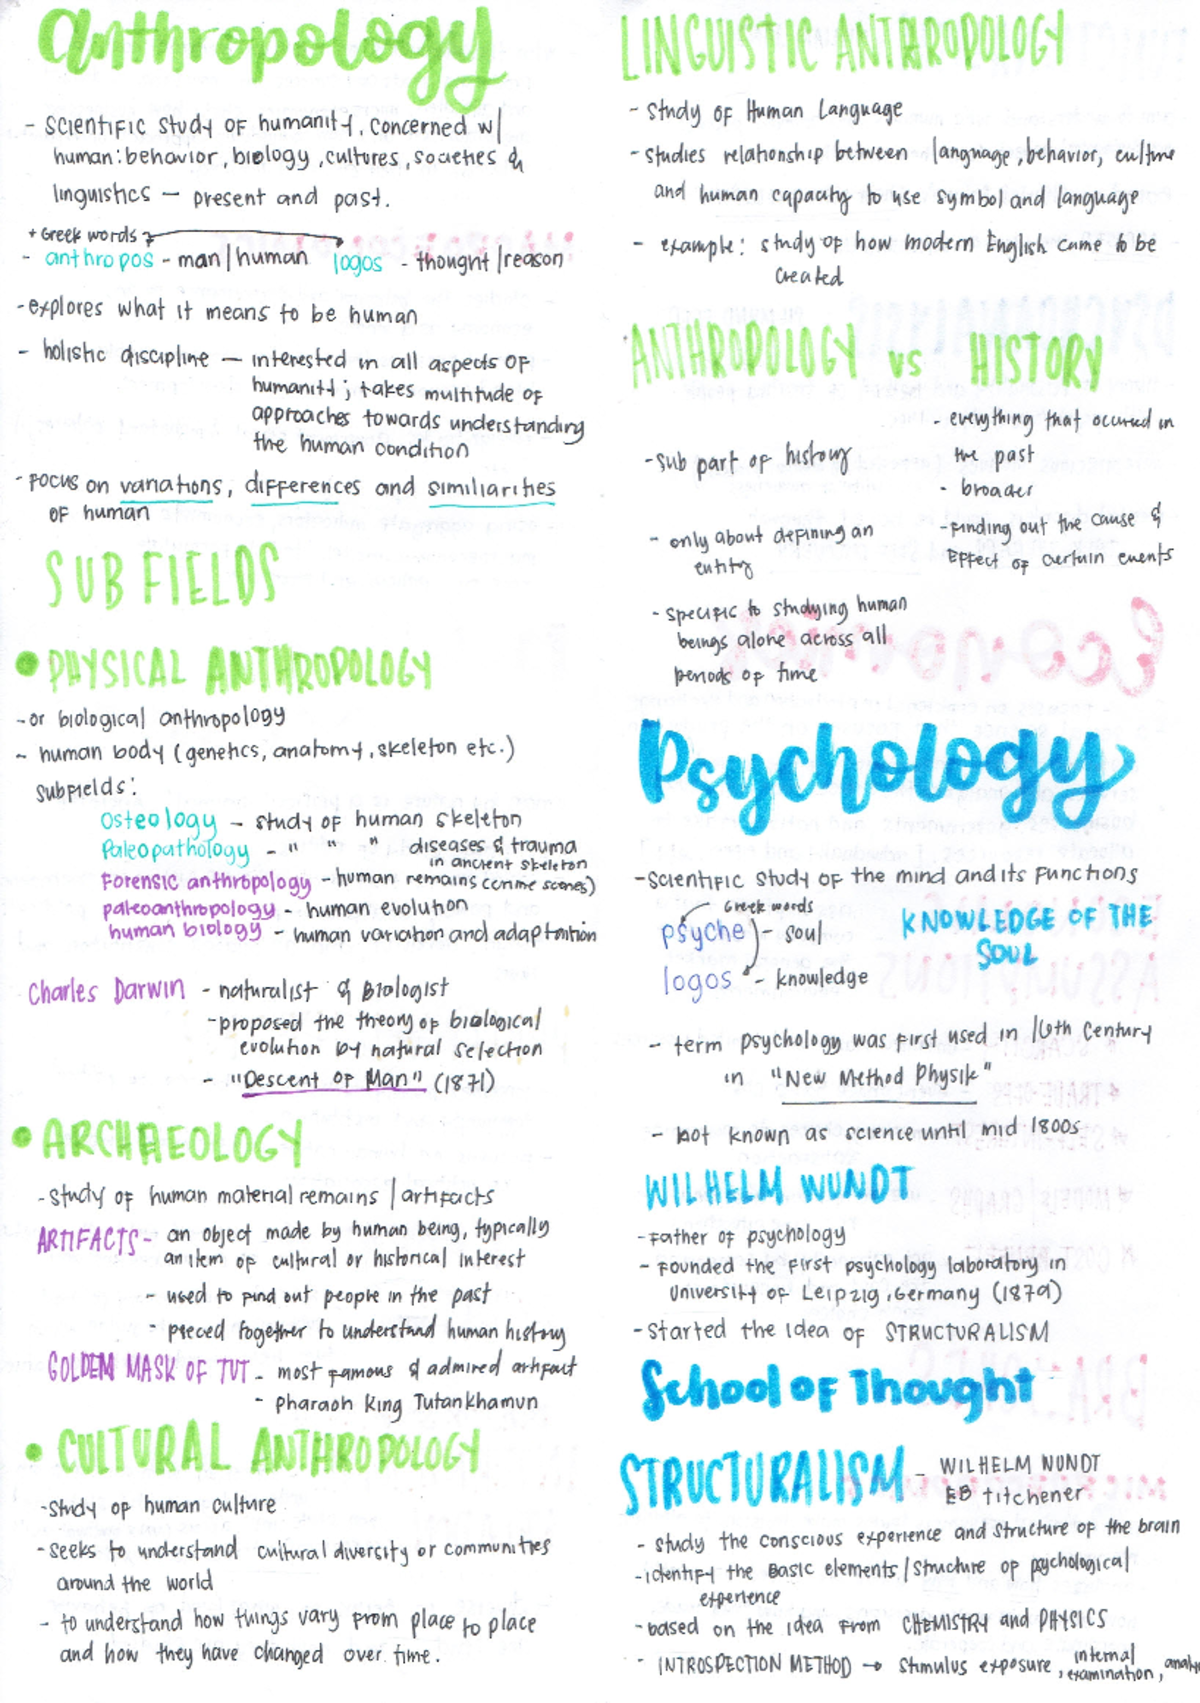 anthropology
- scientific study of humanity, concerned w/
human: behavior, biology, cultures, societies &
linguistics — present and past.
+ Greek words
- anthropos - man/human logos - thought/reason
- explores what it means to be human
- holistic discipline — interested in all aspects of
humanity; takes multitude of
approaches towards understanding
the human condition
- Focus on variations, differences and similiarities
of human
SUB FIELDS
• PHYSICAL ANTHROPOLOGY
- or biological anthropology
- human body (genetics, anatomy, skeleton etc.)
subfields:
Osteology - study of human skeleton
Paleopathology - " " " diseases & trauma
in ancient skeleton
Forensic anthropology - human remains (crime scenes)
paleoanthropology - human evolution
human biology - human variation and adaptation
Charles Darwin - naturalist & Biologist
- proposed the theory of biological
evolution by natural selection
- "Descent of Man" (1871)
• ARCHAEOLOGY
- study of human material remains / artifacts
ARTIFACTS - an object made by human being, typically
an item of cultural or historical interest
- used to find out people in the past
- pieced together to understand human history
GOLDEN MASK OF TUT - most famous & admired artifact
- pharaoh King Tutankhamun
• CULTURAL ANTHROPOLOGY
- study of human culture
- seeks to understand cultural diversity or communities
around the world
- to understand how things vary from place to place
and how they have changed over time.
LINGUISTIC ANTHROPOLOGY
- study of Human Language
- studies relationship between language, behavior, culture
and human capacity to use symbol and language
- example: study of how modern English came to be
created
ANTHROPOLOGY vs HISTORY
- sub part of history
- only about defining an
entity
- specific to studying human
beings alone across all
periods of time
- everything that occured in
the past
- broader
- Finding out the cause &
Effect of certain events
Psychology
- scientific study of the mind and its functions
Greek words
psyche - soul
logos - knowledge
KNOWLEDGE OF THE
SOUL
- term psychology was first used in 16th Century
in "New Method Physik"
- not known as science until mid 1800s
WILHELM WUNDT
- Father of psychology
- Founded the first psychology laboratory in
University of Leipzig, Germany (1879)
- Started the idea of STRUCTURALISM
School of Thought
STRUCTURALISM - WILHELM WUNDT
EB titchener
- study the conscious experience and structure of the brain
- identify the Basic elements / structure of psychological
experience
- based on the idea from CHEMISTRY and PHYSICS
- INTROSPECTION METHOD → stimulus exposure, internal
examination,